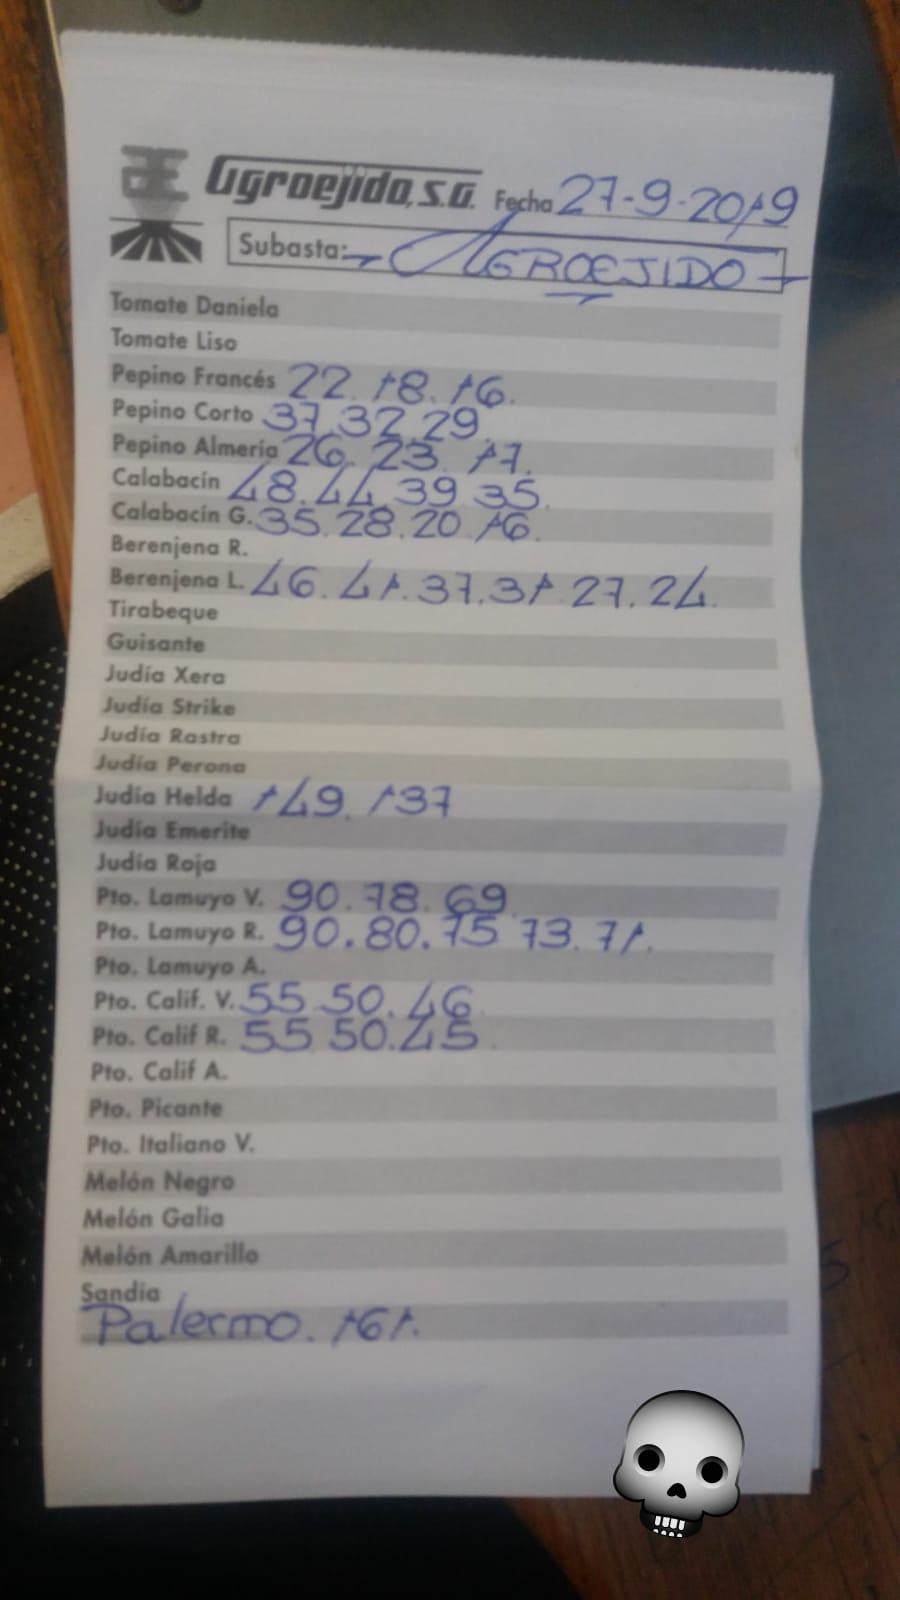 Agroejido, S.A. Fecha 27-9-2019
Subasta: AGROEJIDO
Tomate Daniela
Tomate Liso
Pepino Francés 22. 18. 16.
Pepino Corto 37. 32. 29.
Pepino Almería 26. 23. 17.
Calabacín 48. 44. 39. 35.
Calabacín G. 35. 28. 20. 16.
Berenjena R.
Berenjena L. 46. 41. 37. 31. 27. 24.
Tirabeque
Guisante
Judía Xera
Judía Strike
Judía Rastra
Judía Perona
Judía Helda 149. 137
Judía Emerite
Judía Roja
Pto. Lamuyo V. 90. 78. 69
Pto. Lamuyo R. 90. 80. 75 73. 71.
Pto. Lamuyo A.
Pto. Calif. V. 55 50. 46
Pto. Calif R. 55 50. 45.
Pto. Calif A.
Pto. Picante
Pto. Italiano V.
Melón Negro
Melón Galia
Melón Amarillo
Sandía
Palermo. 161.